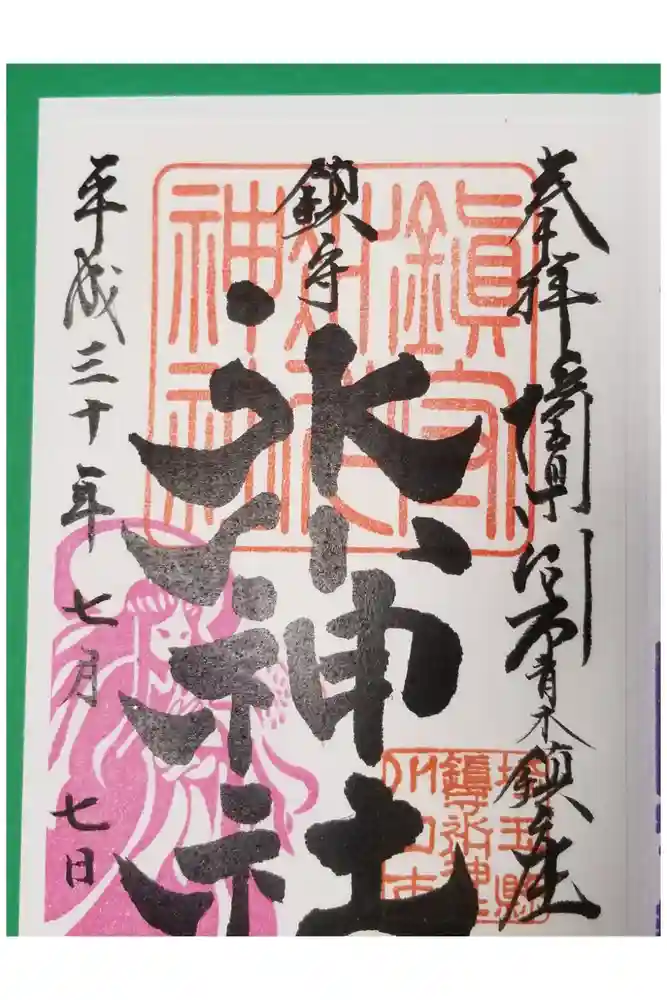 奉拝 埼玉県川口市青木鎮座
鎮守
氷川神社
平成三十年 七月 七日
鎮守
氷川
神社
埼玉縣
鎮守氷川神社
川口市